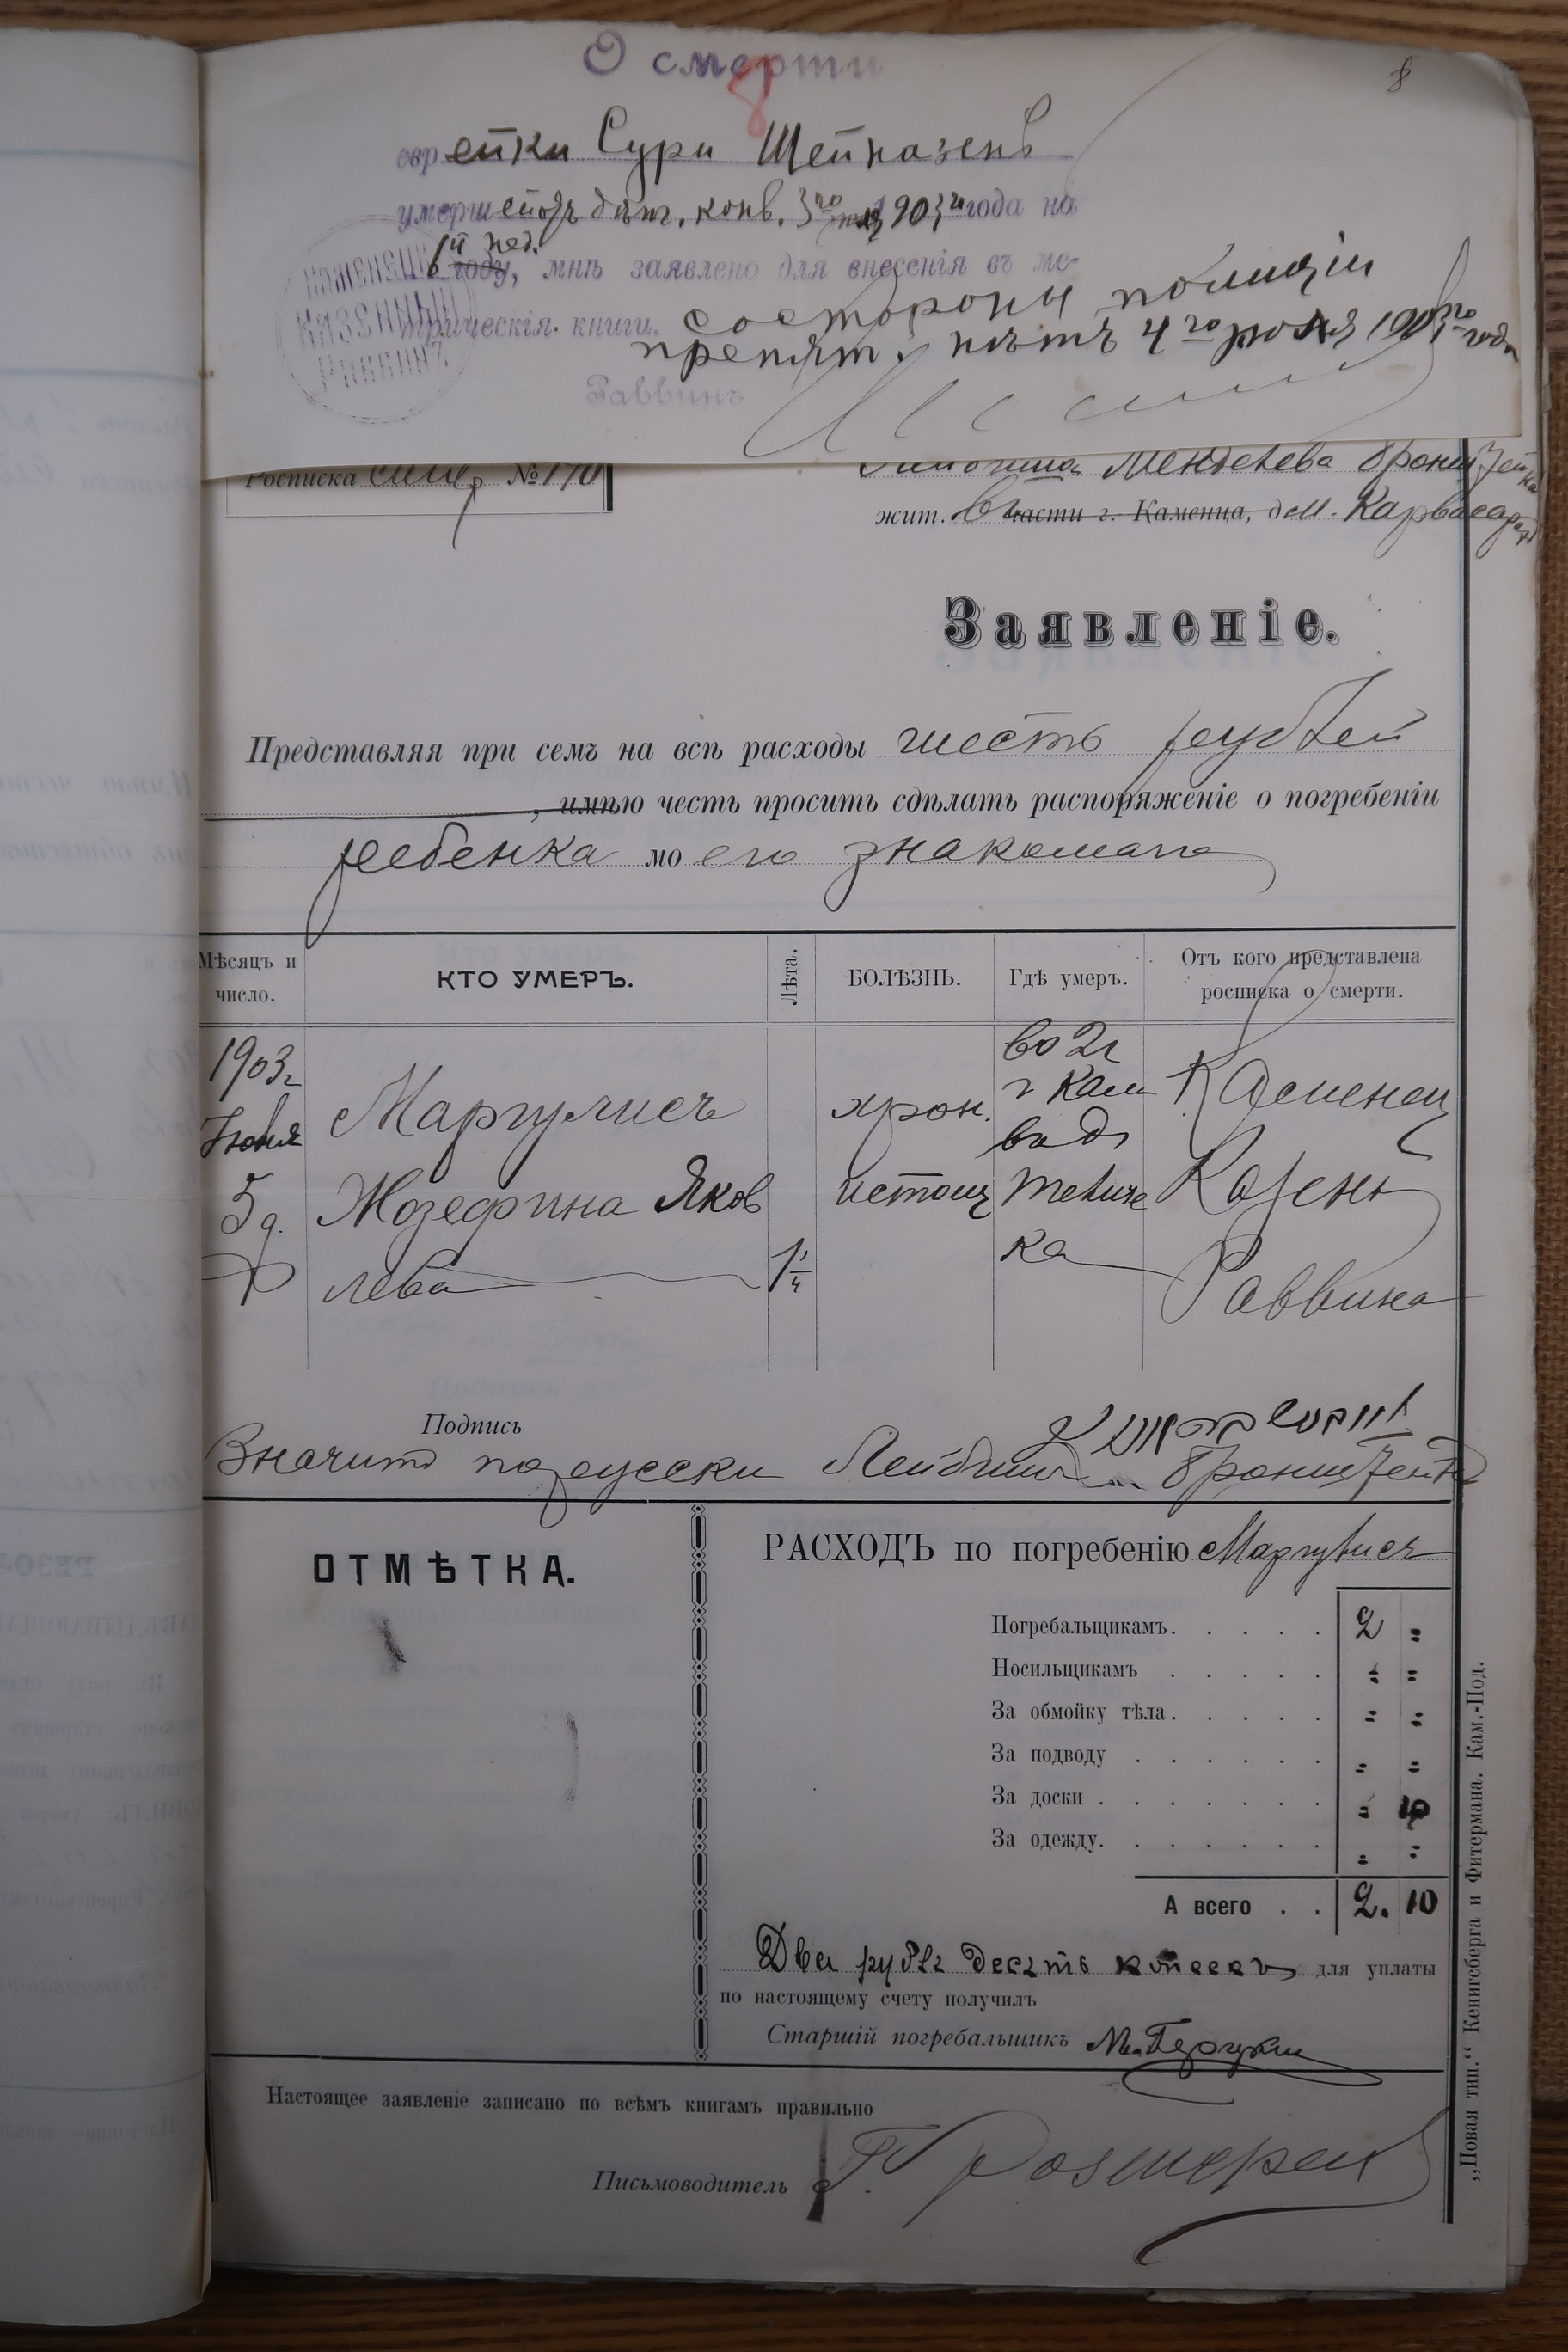 О смерти
8
8
еврейки Сури Шейназенъ
умершей отъ дѣт. конв. 3го 1903 года на
6й нед.
году, мнѣ заявлено для внесенія въ ме-
трическія книги. со стороны полиціи
препят. нѣтъ 4го іюня 1903го года
Каменецкій
Казенный
Раввинъ
Раввинъ
Росписка № 170
Менделева Бронштейна
жит. части г. Каменца, д м. Карвасаръ
Заявленіе.
Представляя при семъ на всѣ расходы шесть рублей
, имѣю честь просить сдѣлать распоряженіе о погребеніи
ребенка моего знакомаго
Мѣсяцъ и число. КТО УМЕРЪ. Лѣта. БОЛѢЗНЬ. Гдѣ умеръ. Отъ кого представлена росписка о смерти.
1903г Іюня 5 д. Маргулисъ Жозефина Яковлева 1 1/4 хрон. истощ во 2г г Кам в д Каменец Казен Раввина
Подпись
Значитъ по русски Лейбиш Бронштейнъ
ОТМѢТКА.
РАСХОДЪ по погребенію Маргулисъ
Погребальщикамъ. . . . . 2 "
Носильщикамъ . . . . . " "
За обмойку тѣла. . . . . " "
За подводу . . . . . . " "
За доски . . . . . . . " 10
За одежду. . . . . . . " "
А всего . . 2. 10
Два рубля десять копеекъ для уплаты
по настоящему счету получилъ
Старшій погребальщикъ
Настоящее заявленіе записано по всѣмъ книгамъ правильно
Письмоводитель
„Новая тип.“ Кенигсберга и Фитермана. Кам.-Под.